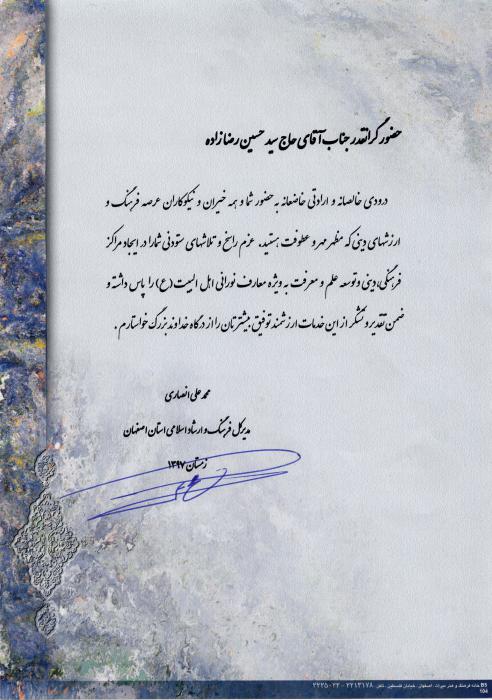 حضور گرانقدر جناب آقای حاج سید حسین رضازاده
درودی خالصانه و ارادتی خاضعانه به حضور شما و همه خیران و نیکوکاران عرصه فرهنگ و
ارزشهای دینی که مظهر مهر و عطوفت هستید. عزم راسخ و تلاشهای ستودنی شما را در ایجاد مراکز
فرهنگی، دینی و توسعه علم و معرفت به ویژه معارف نورانی اهل البیت (ع) را پاس داشته و
ضمن تقدیر و تشکر از این خدمات ارزشمند توفیق بیشترتان را از درگاه خداوند بزرگ خواستارم .
محمد علی انصاری
مدیرکل فرهنگ و ارشاد اسلامی استان اصفهان
زمستان ۱۳۹۷
B5 خانه فرهنگ و هنر میراث . اصفهان . خیابان فلسطین . تلفن: ۳۲۲۱۳۱۷۸ - ۳۲۲۵۰۲۲